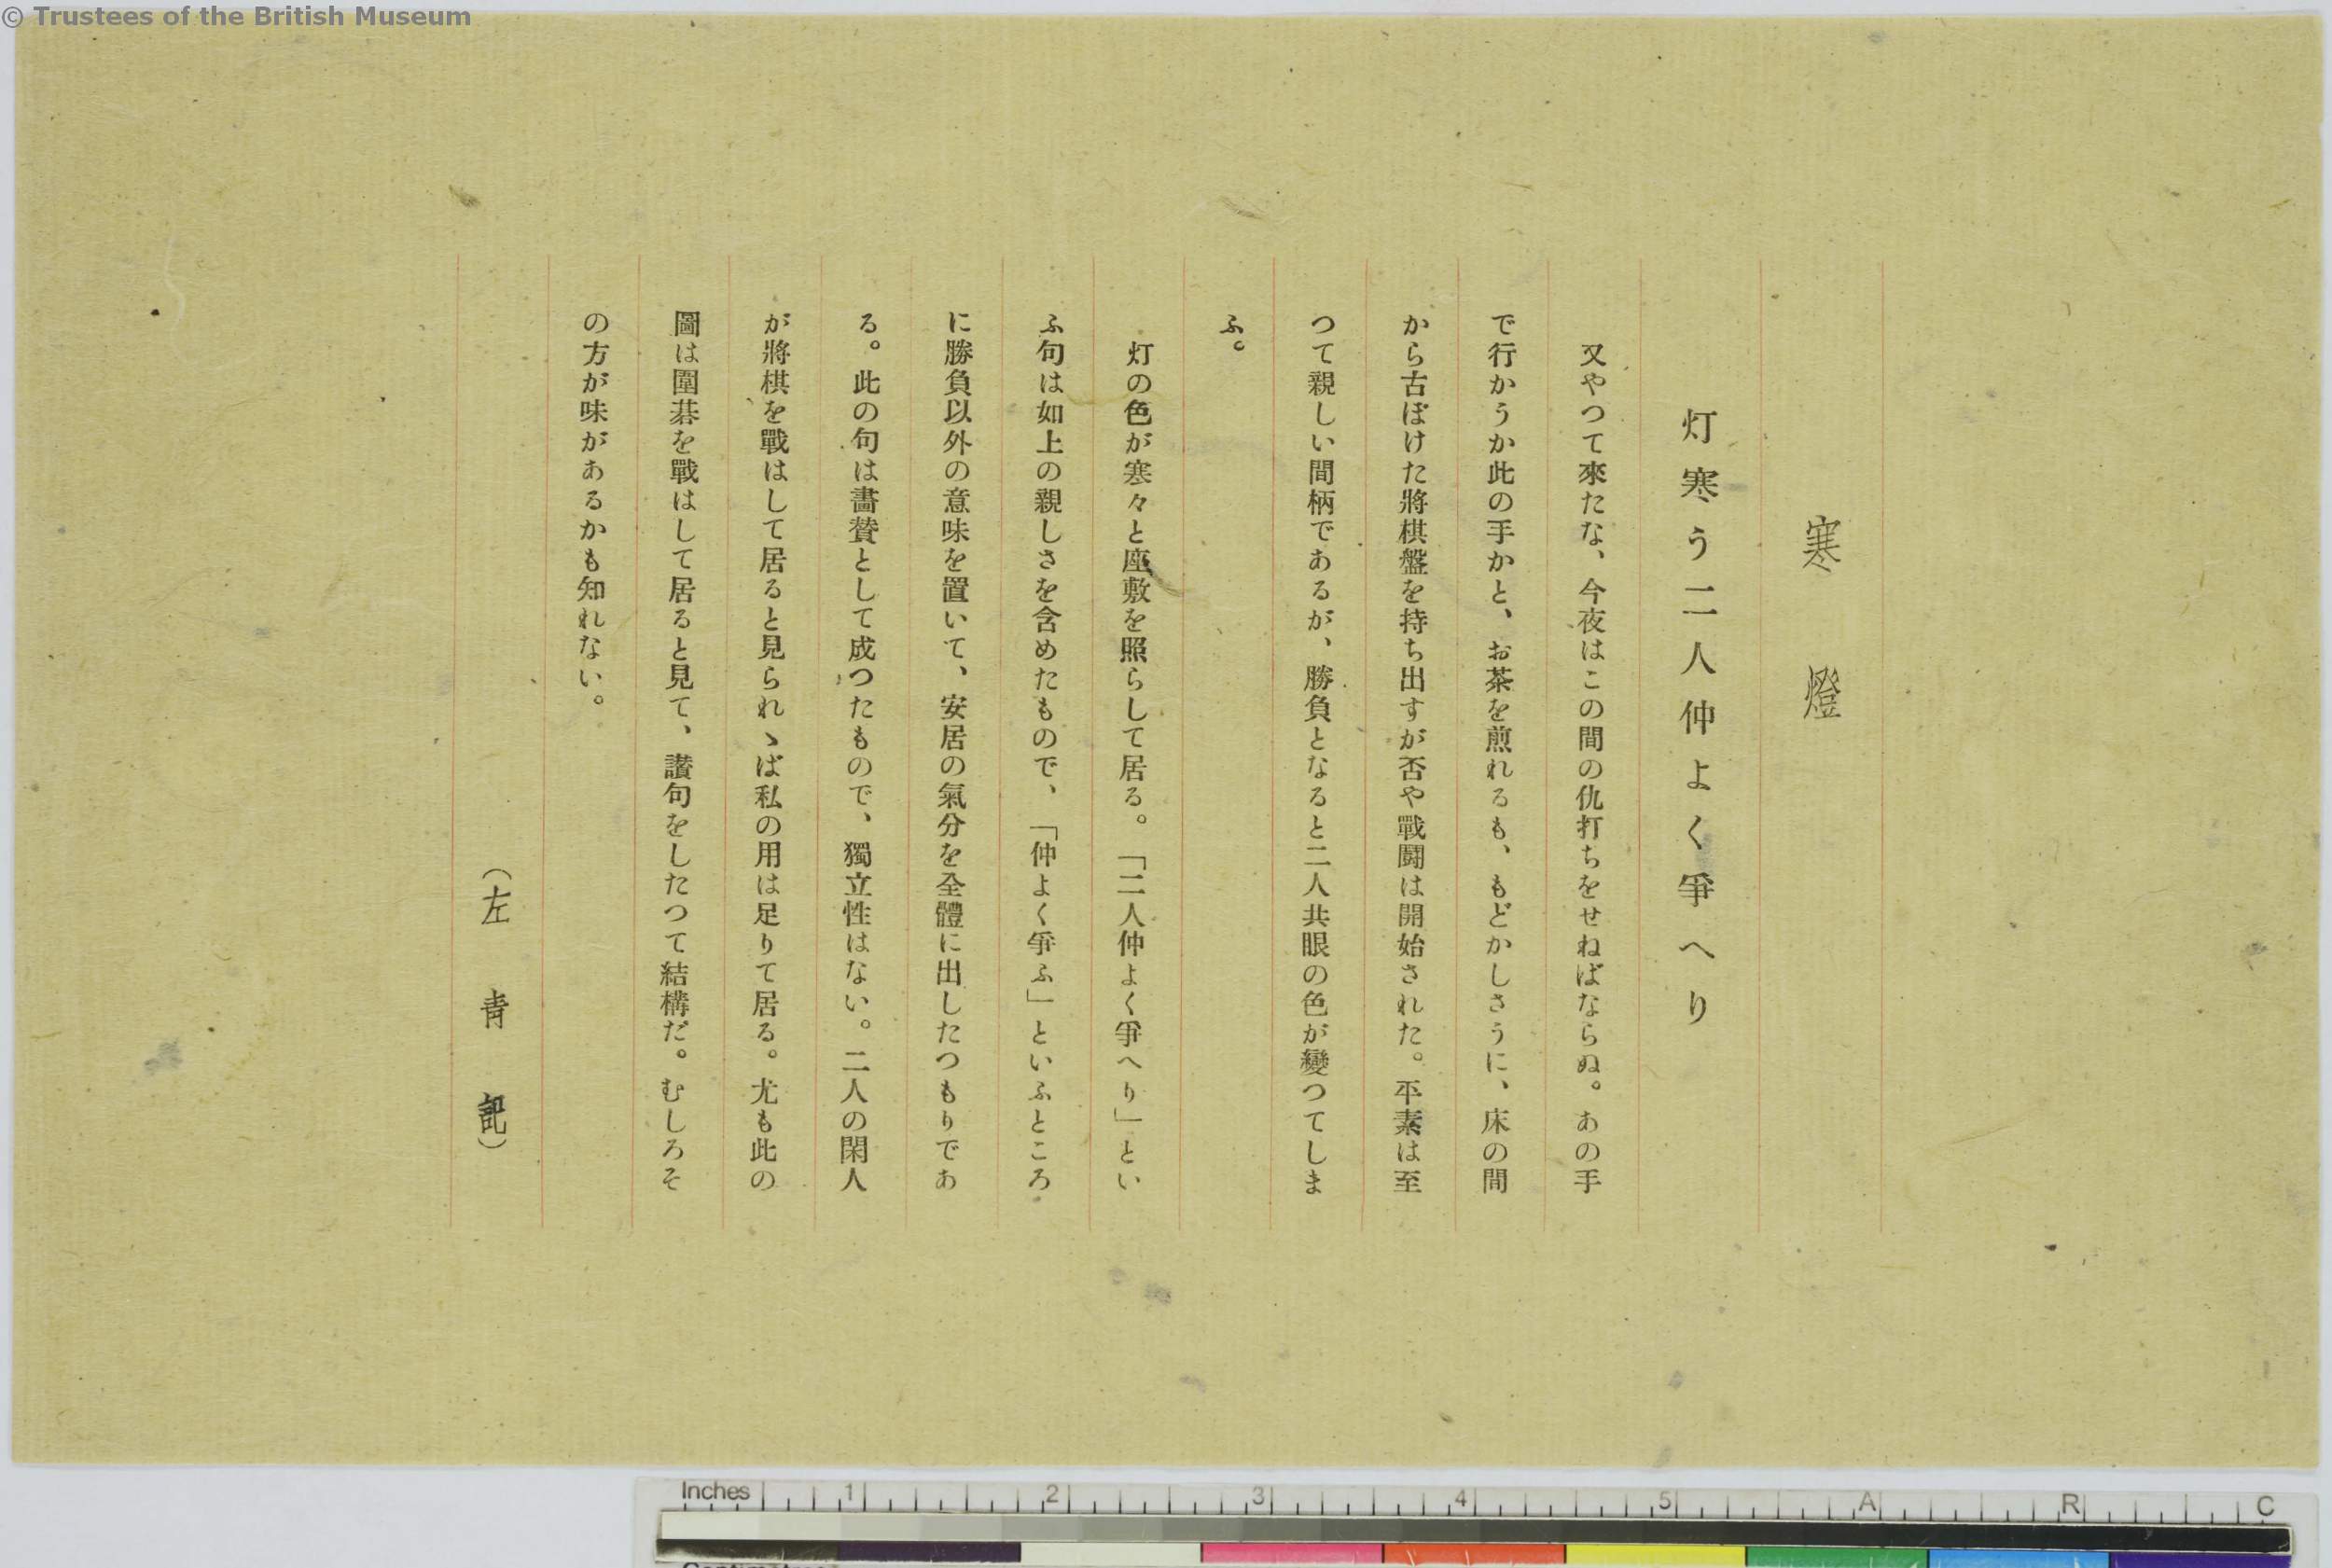 © Trustees of the British Museum
寒燈
灯寒う二人仲よく爭へり
又やつて來たな、今夜はこの間の仇打ちをせねばならぬ。あの手
で行かうか此の手かと、お茶を煎れるも、もどかしさうに、床の間
から古ぼけた將棋盤を持ち出すが否や戰鬪は開始された。平素は至
つて親しい間柄であるが、勝負となると二人共眼の色が變つてしま
ふ。
灯の色が寒々と座敷を照らして居る。「二人仲よく爭へり」とい
ふ句は如上の親しさを含めたもので、「仲よく爭ふ」といふところ
に勝負以外の意味を置いて、安居の氣分を全體に出したつもりであ
る。此の句は畵賛として成つたもので、獨立性はない。二人の閑人
が將棋を戰はして居ると見られゝば私の用は足りて居る。尤も此の
圖は圍碁を戰はして居ると見て、讃句をしたつて結構だ。むしろそ
の方が味があるかも知れない。
（左靑記）
Inches 1 2 3 4 5 A R C